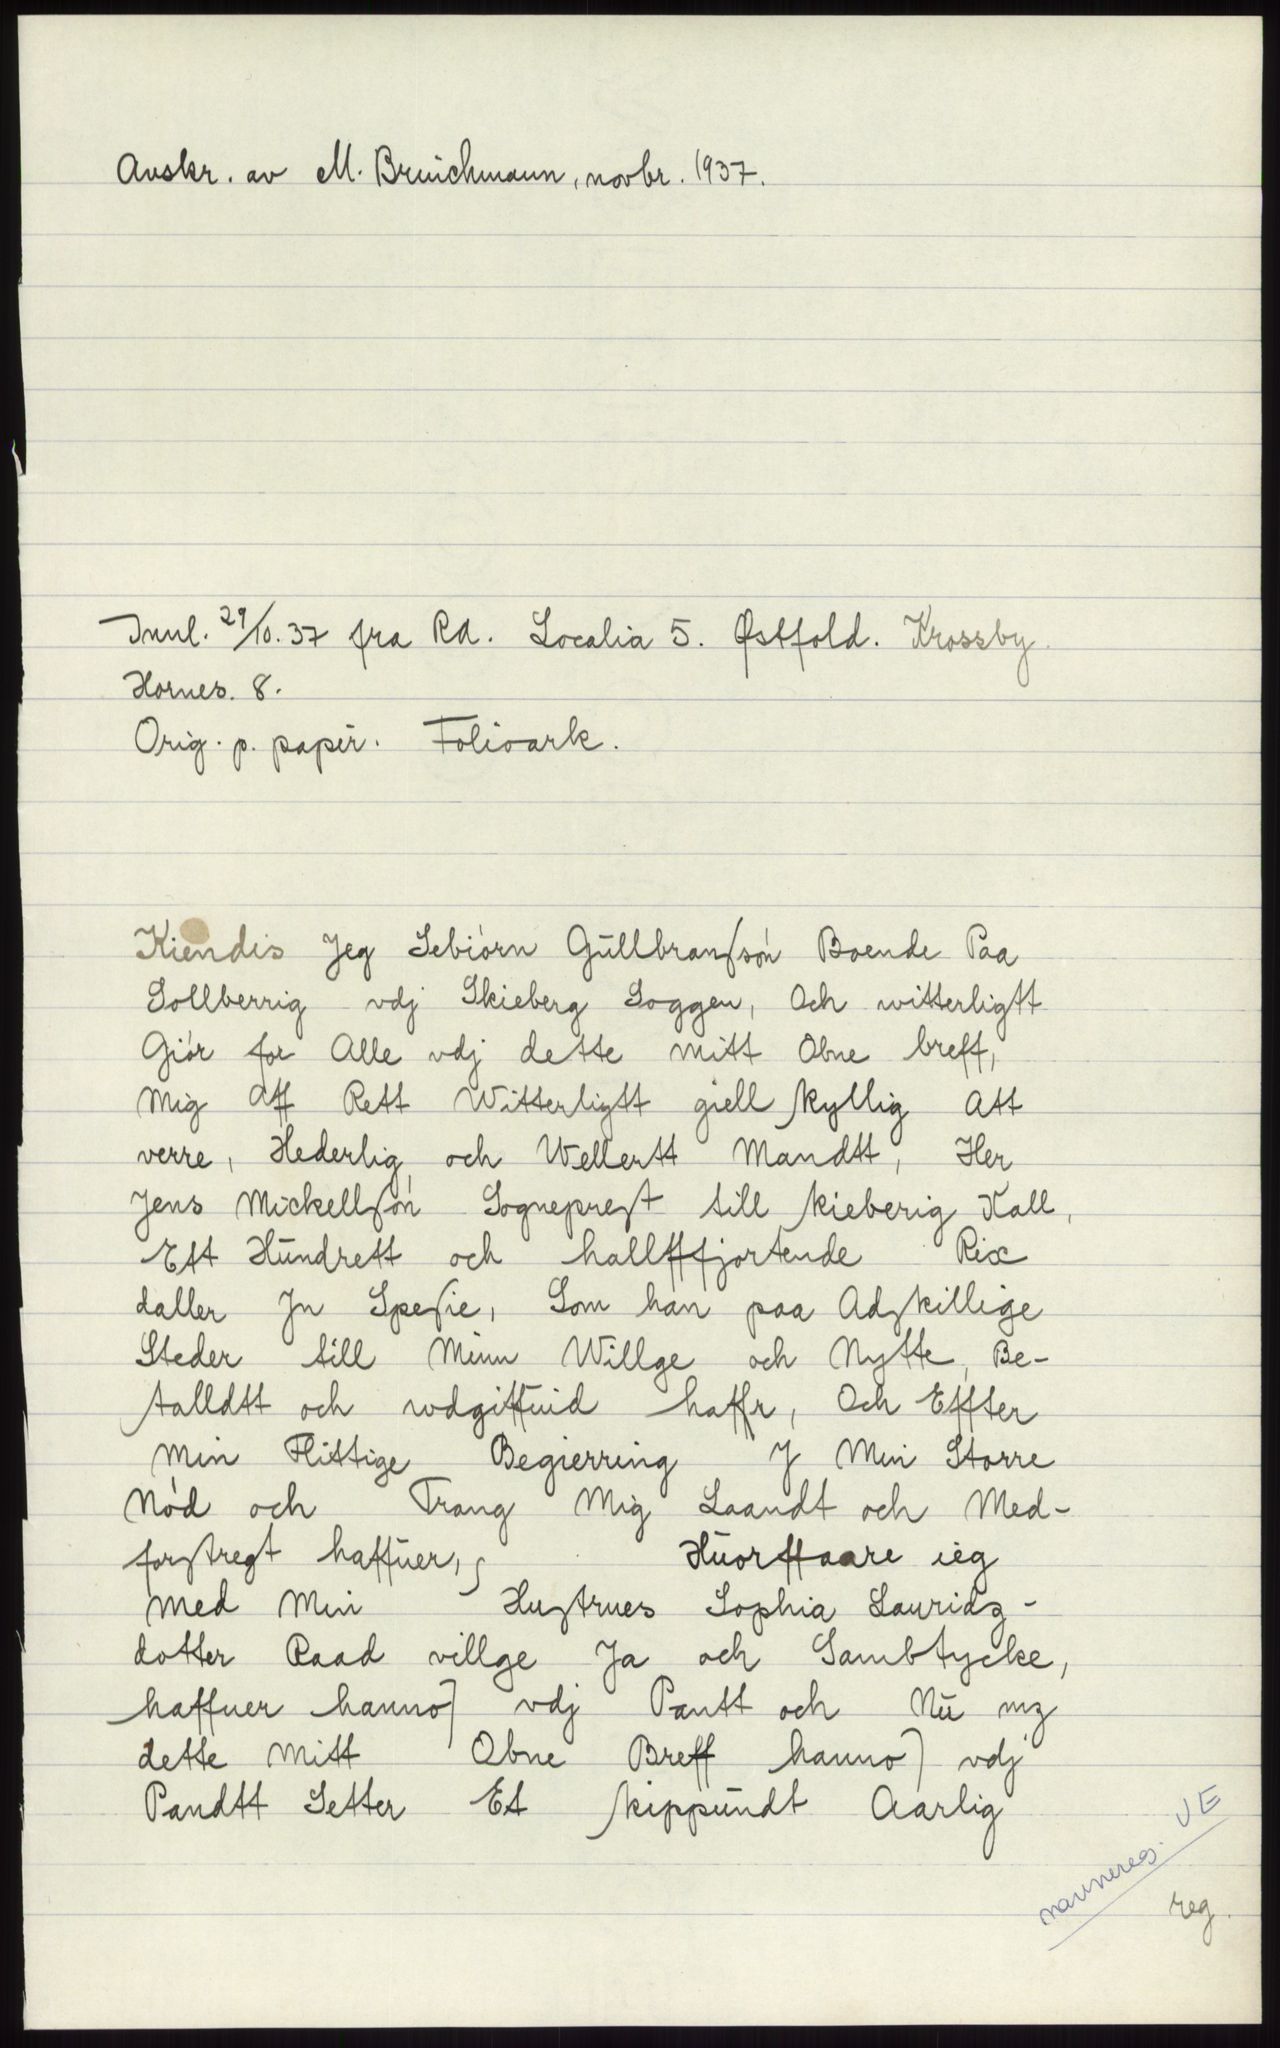 Avskr. av M. Bruichmann, novbr. 1937.
Innl. 29/10.37 fra RA. Localia 5. Østfold. Krossby
Hornes. 8.
Orig. p. papir. Folioark.
Kiendis Jeg Sebiörn Gŭllbranſsön Boende Paa
Sollberrig vdj Skieberg Soggen, Och witterligtt
Giör for Alle vdj dette mitt Obne breff,
Mig Aff Rett Witterligtt giell ſkyllig Att
verre, Hederlig och Wellertt Mandtt, Her
Jens Mickellſön Sogneprest till ſkieberig Kall,
Ett Hŭndrett och hallfffjortende Rix
daller Jn Speſie, Som han paa Adskillige
Steder till Minn Willge och Nytte, Be-
talldtt och wdgiffŭid haffr, Och Effter
Min Flittige Begierring J Min Storre
Nöd och Trang Mig Laandt och Med-
forstregt haffŭer, Hŭorffaare ieg
Med Min Hustrues Sophia Lauridz-
dotter Raad villge Ja och Sambtycke,
haffuer hanno[m] vdj Pantt och Nŭ mz
dette Mitt Obne Breff hanno[m] vdj
Pandtt Setter Et ſkippŭndt Aarlig
navnereg. VE
reg.